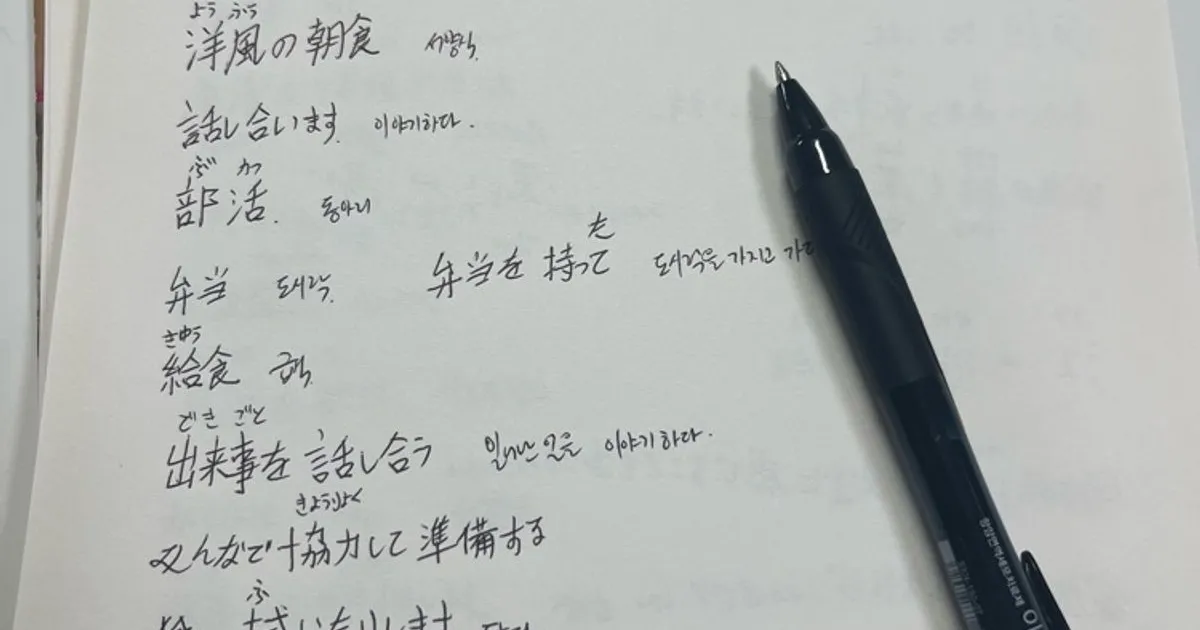 ようふう
洋風の朝食 서양식.
話し合います. 이야기하다.
ぶかつ
部活. 동아리
た
弁当 도시락. 弁当を持って 도시락을 가지고
きゅう
給食 급식.
できごと
出来事を話し合う 일어난 일을 이야기하다.
きょうりょく
みんなで協力して準備する
ふ
拭いたりします